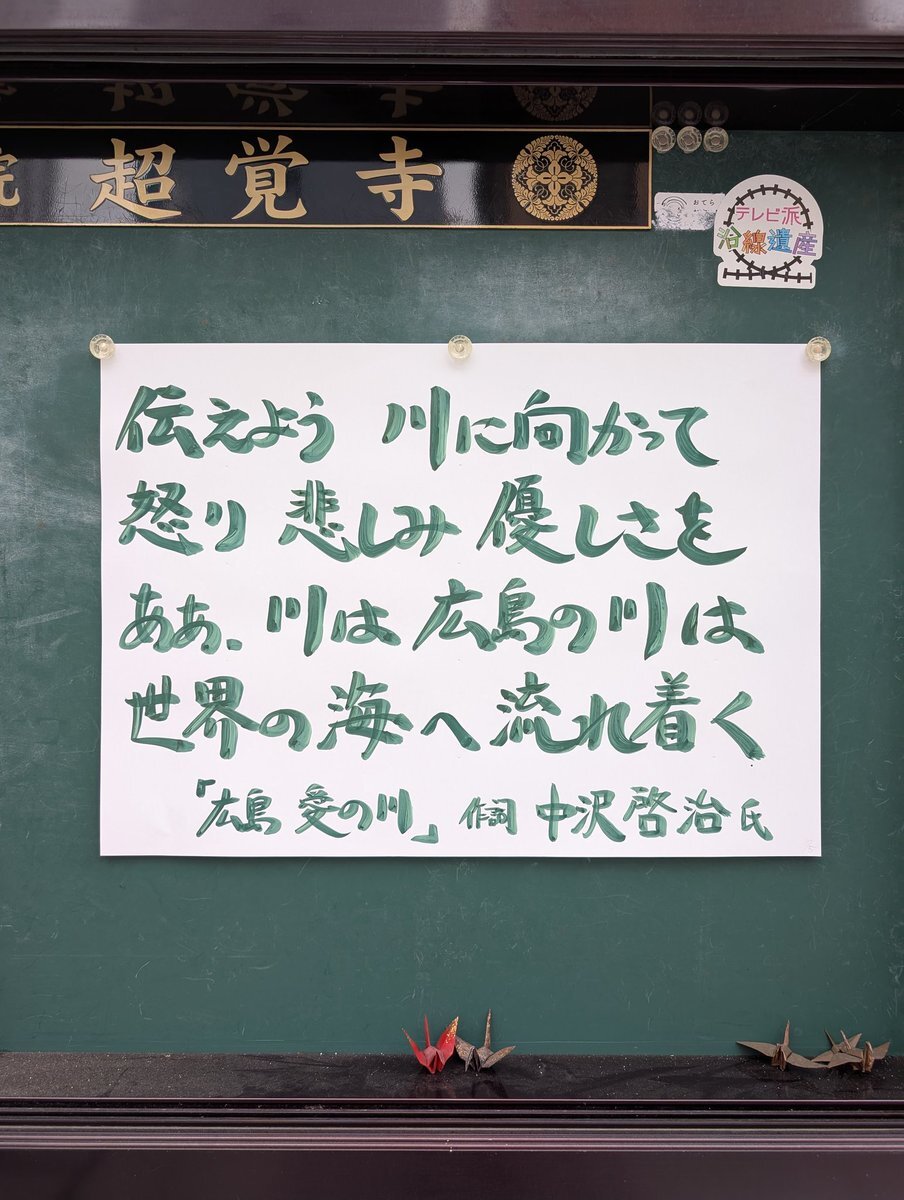 超覚寺
おてら
テレビ派
沿線遺産
伝えよう 川に向かって
怒り 悲しみ 優しさを
ああ、川は 広島の川は
世界の海へ 流れ着く
「広島 愛の川」 作詞 中沢啓治氏